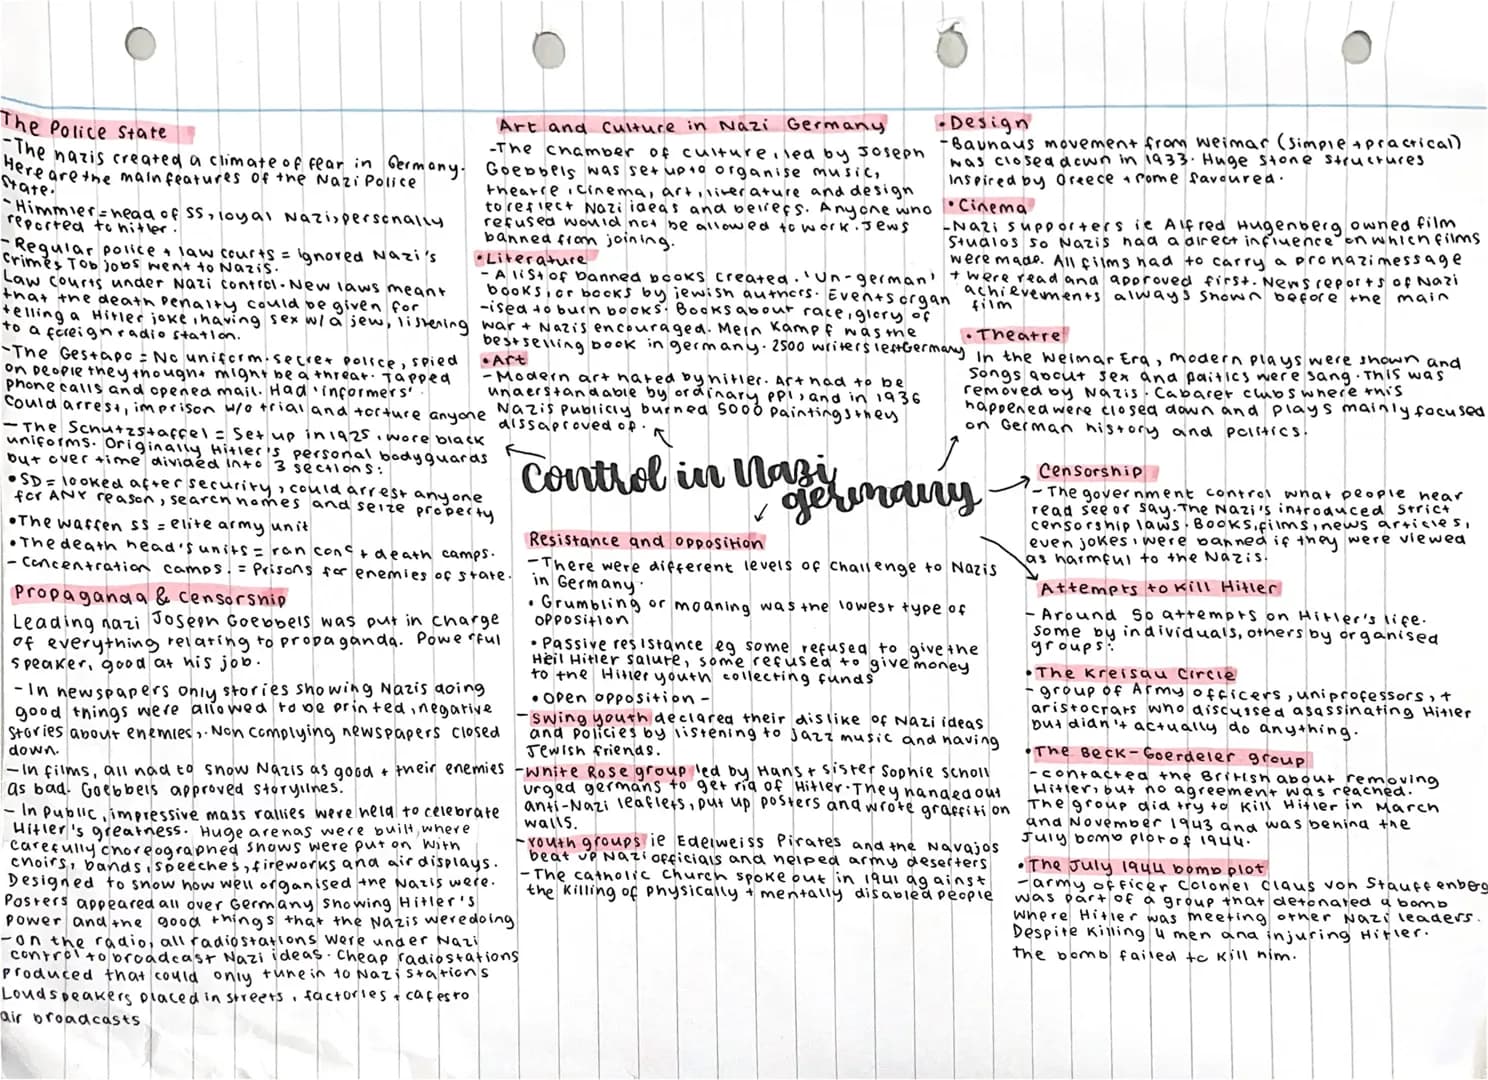 The Police State
-The nazis created a climate of fear in Germany.
Here are the main features of the Nazi Police
State.
-Himmler=head of SS, loyal Nazi, personally
reported to hitler.
-Regular police + law courts = Ignored Nazi's
crimes Top jobs went to Nazis.
Law courts under Nazi control. New laws meant
that the death penalty could be given for
telling a Hitler joke, having sex w/a jew, listening
to a foreign radio station.
-The Gestapo = No uniform. secret police, spied
on people they thought might be a threat. Tapped
phone calls and opened mail. Had 'informers'
could arrest, imprison w/o trial and torture anyone
- The Schutzstaffel = Set up in 1925, wore black
uniforms. Originally Hitler's personal bodyguards
but over time divided into 3 sections:
•SD = looked after security, could arrest anyone
for ANY reason, search homes and seize property
•The waffen SS = elite army unit
•The death head's units = ran conc + death camps.
- Concentration camps. = Prisons for enemies of state.
Propaganda & Censorship
Leading nazi Joseph Goebbels was put in charge
of everything relating to propaganda. Powerful
speaker, good at his job.
-In newspapers only stories showing Nazis doing
good things were allowed to be printed, negative
stories about enemies,. Non complying newspapers closed
down.
-In films, all had to show Nazis as good + their enemies
as bad. Goebbels approved storylines.
- In public, impressive mass rallies were held to celebrate
Hitler's greatness. Huge arenas were built, where
carefully choreographed shows were put on with
choirs, bands, speeches, fireworks and air displays.
Designed to show how well organised the Nazis were.
Posters appeared all over Germany showing Hitler's
power and the good things that the Nazis were doing
-on the radio, all radiostations were under Nazi
control to broadcast Nazi ideas. Cheap radiostations
produced that could only tune in to Nazi stations
Loudspeakers placed in streets, factories + cafes to
air broadcasts
Art and Culture in Nazi Germany
-The chamber of culture, led by Joseph
Goebbels was set up to organise music,
theatre, cinema, art, literature and design
to reflect Nazi ideas and beliefs. Anyone who
refused would not be allowed to work. Jews
banned from joining.
•Literature
- A list of banned books created. 'Un-german'
books, or books by jewish authors. Events organ
-ised to burn books. Books about race, glory of
war + Nazis encouraged. Mein Kampf was the
best selling book in germany. 2500 writers left Germany
•Art
-Modern art hated by hitler. Art had to be
understandable by ordinary ppl, and in 1936
Nazis publicly burned 5000 paintings they
dissaproved of.
•Design
-Bauhaus movement from Weimar (simple + practical)
was closed down in 1933. Huge stone structures
Inspired by Greece + rome favoured.
•Cinema
-Nazi supporters ie Alfred Hugenberg owned film
studios so Nazis had a direct influence on which films
were made. All films had to carry a pro nazi message
+ were read and approved first. News reports of Nazi
achievements always shown before the main
film
•Theatre
In the Weimar Era, modern plays were shown and
songs about sex and politics were sang. This was
removed by Nazis. Cabaret clubs where this
happened were closed down and plays mainly focused
on German history and politics.
Control in Nazi
germany
Resistance and opposition
-There were different levels of challenge to Nazis
in Germany.
•Grumbling or moaning was the lowest type of
opposition
•Passive resistance eg some refused to give the
Heil Hitler salute, some refused to give money
to the Hitler youth collecting funds
•open opposition -
-Swing youth declared their dislike of Nazi ideas
and policies by listening to jazz music and having
Jewish friends.
-White Rose group led by Hans + sister Sophie Scholl
urged germans to get rid of Hitler. They handed out
anti-Nazi leaflets, put up posters and wrote graffiti on
walls.
-Youth groups ie Edelweiss Pirates and the Navajos
beat up Nazi officials and helped army deserters
-The catholic Church spoke out in 1941 against
the killing of physically + mentally disabled people
Censorship
-The government control what people hear
read see or say. The Nazi's introduced strict
censorship laws. Books, films, news articles,
even jokes, were banned if they were viewed
as harmful to the Nazis.
Attempts to Kill Hitler
-Around 50 attempts on Hitler's life.
Some by individuals, others by organised
groups:
•The Kreisau Circle
-group of Army officers, uni professors, +
aristocrats who discussed asassinating Hitler
but didn't actually do anything.
•The Beck-Goerdeler group
-contacted the British about removing
Hitler, but no agreement was reached.
The group did try to kill Hitler in March
and November 1943 and was behind the
July bomb plot of 1944.
•The July 1944 bomb plot
-army officer Colonel Claus von Stauffenberg
was part of a group that detonated a bomb
where Hitler was meeting other Nazi leaders.
Despite killing 4 men and injuring Hitler.
the bomb failed to kill him.